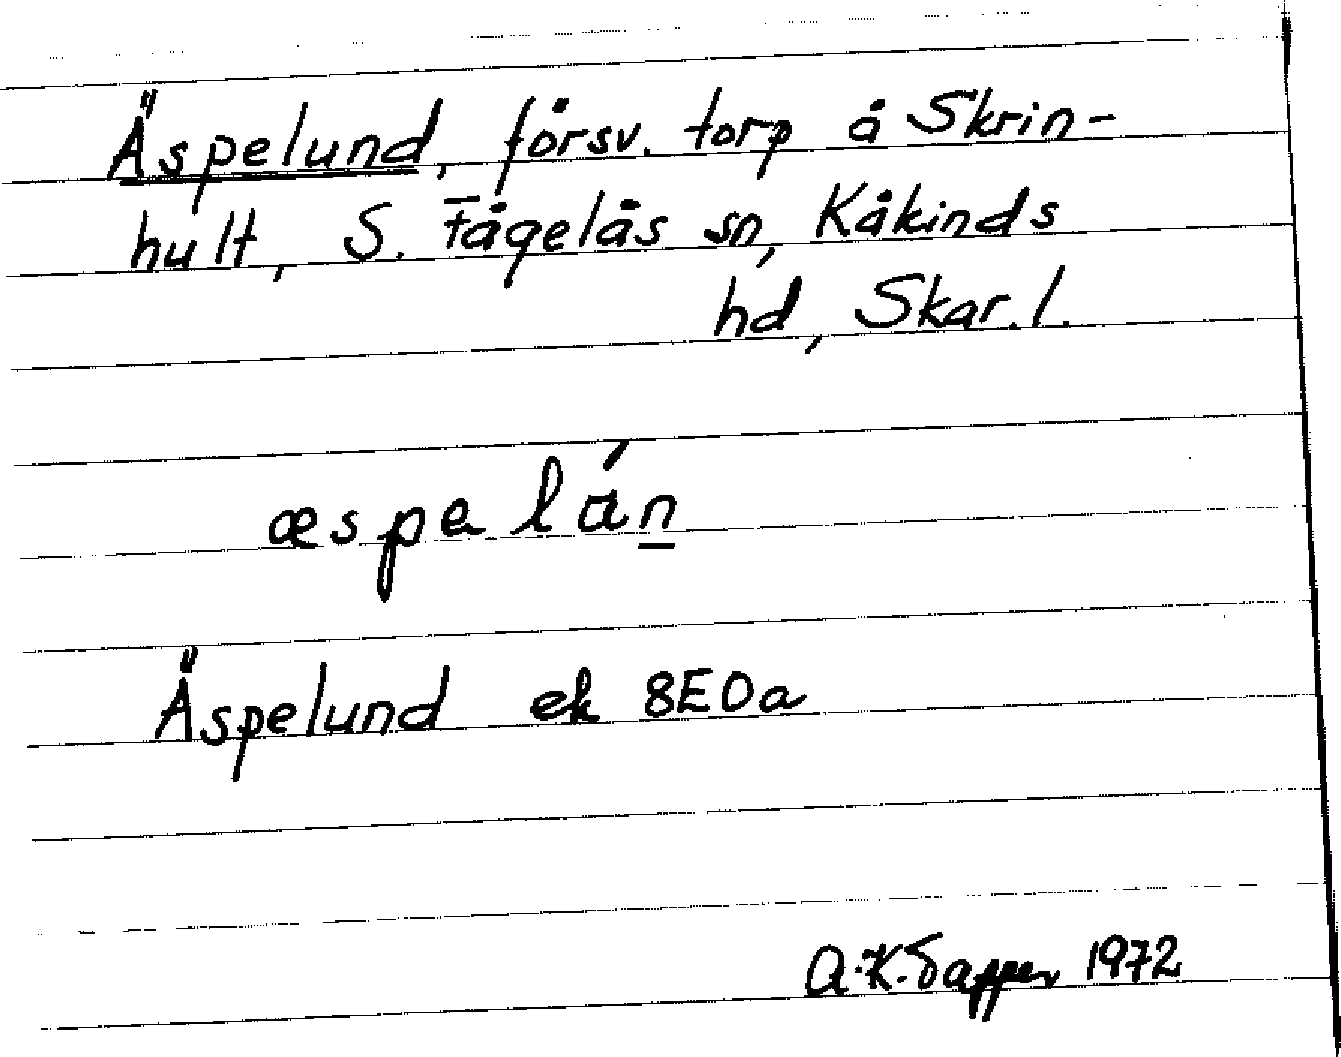 Äspelund, försv. torp å Skrin-
hult, S. Fågelås sn, Kåkinds
hd, Skar. l.
æspelán
Äspelund ek 8E0a
A.K. Tapper 1972